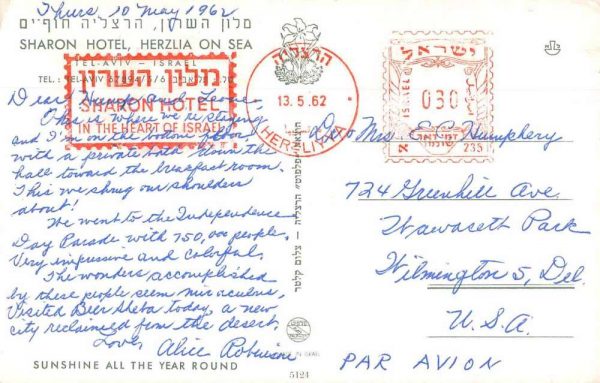 Thurs, 10 May 1962
מלון השרון, הרצליה חוף-ים
SHARON HOTEL, HERZLIA ON SEA
TEL-AVIV - ISRAEL
מלון השרון
SHARON HOTEL
IN THE HEART OF ISRAEL
Dear
This is where we're staying
and I'm on the
with a private bath down the
hall toward the breakfast room.
This we shrug our shoulders
about!
We went to the Independence
Day Parade with 750,000 people.
Very impressive and colorful.
The wonders accomplished
by these people seem miraculous.
Visited Beer Sheba today, a new
city reclaimed from the desert.
Love,
Alice Robinson
SUNSHINE ALL THE YEAR ROUND
הרצליה
13.5.62
HERZLIYYA
ישראל
ISRAEL
030
א
235
Mrs. E. C. Humphery
724 Greenhill Ave.
Wawaset Park
Wilmington 5, Del.
U.S.A.
PAR AVION
IN ISRAEL
5124